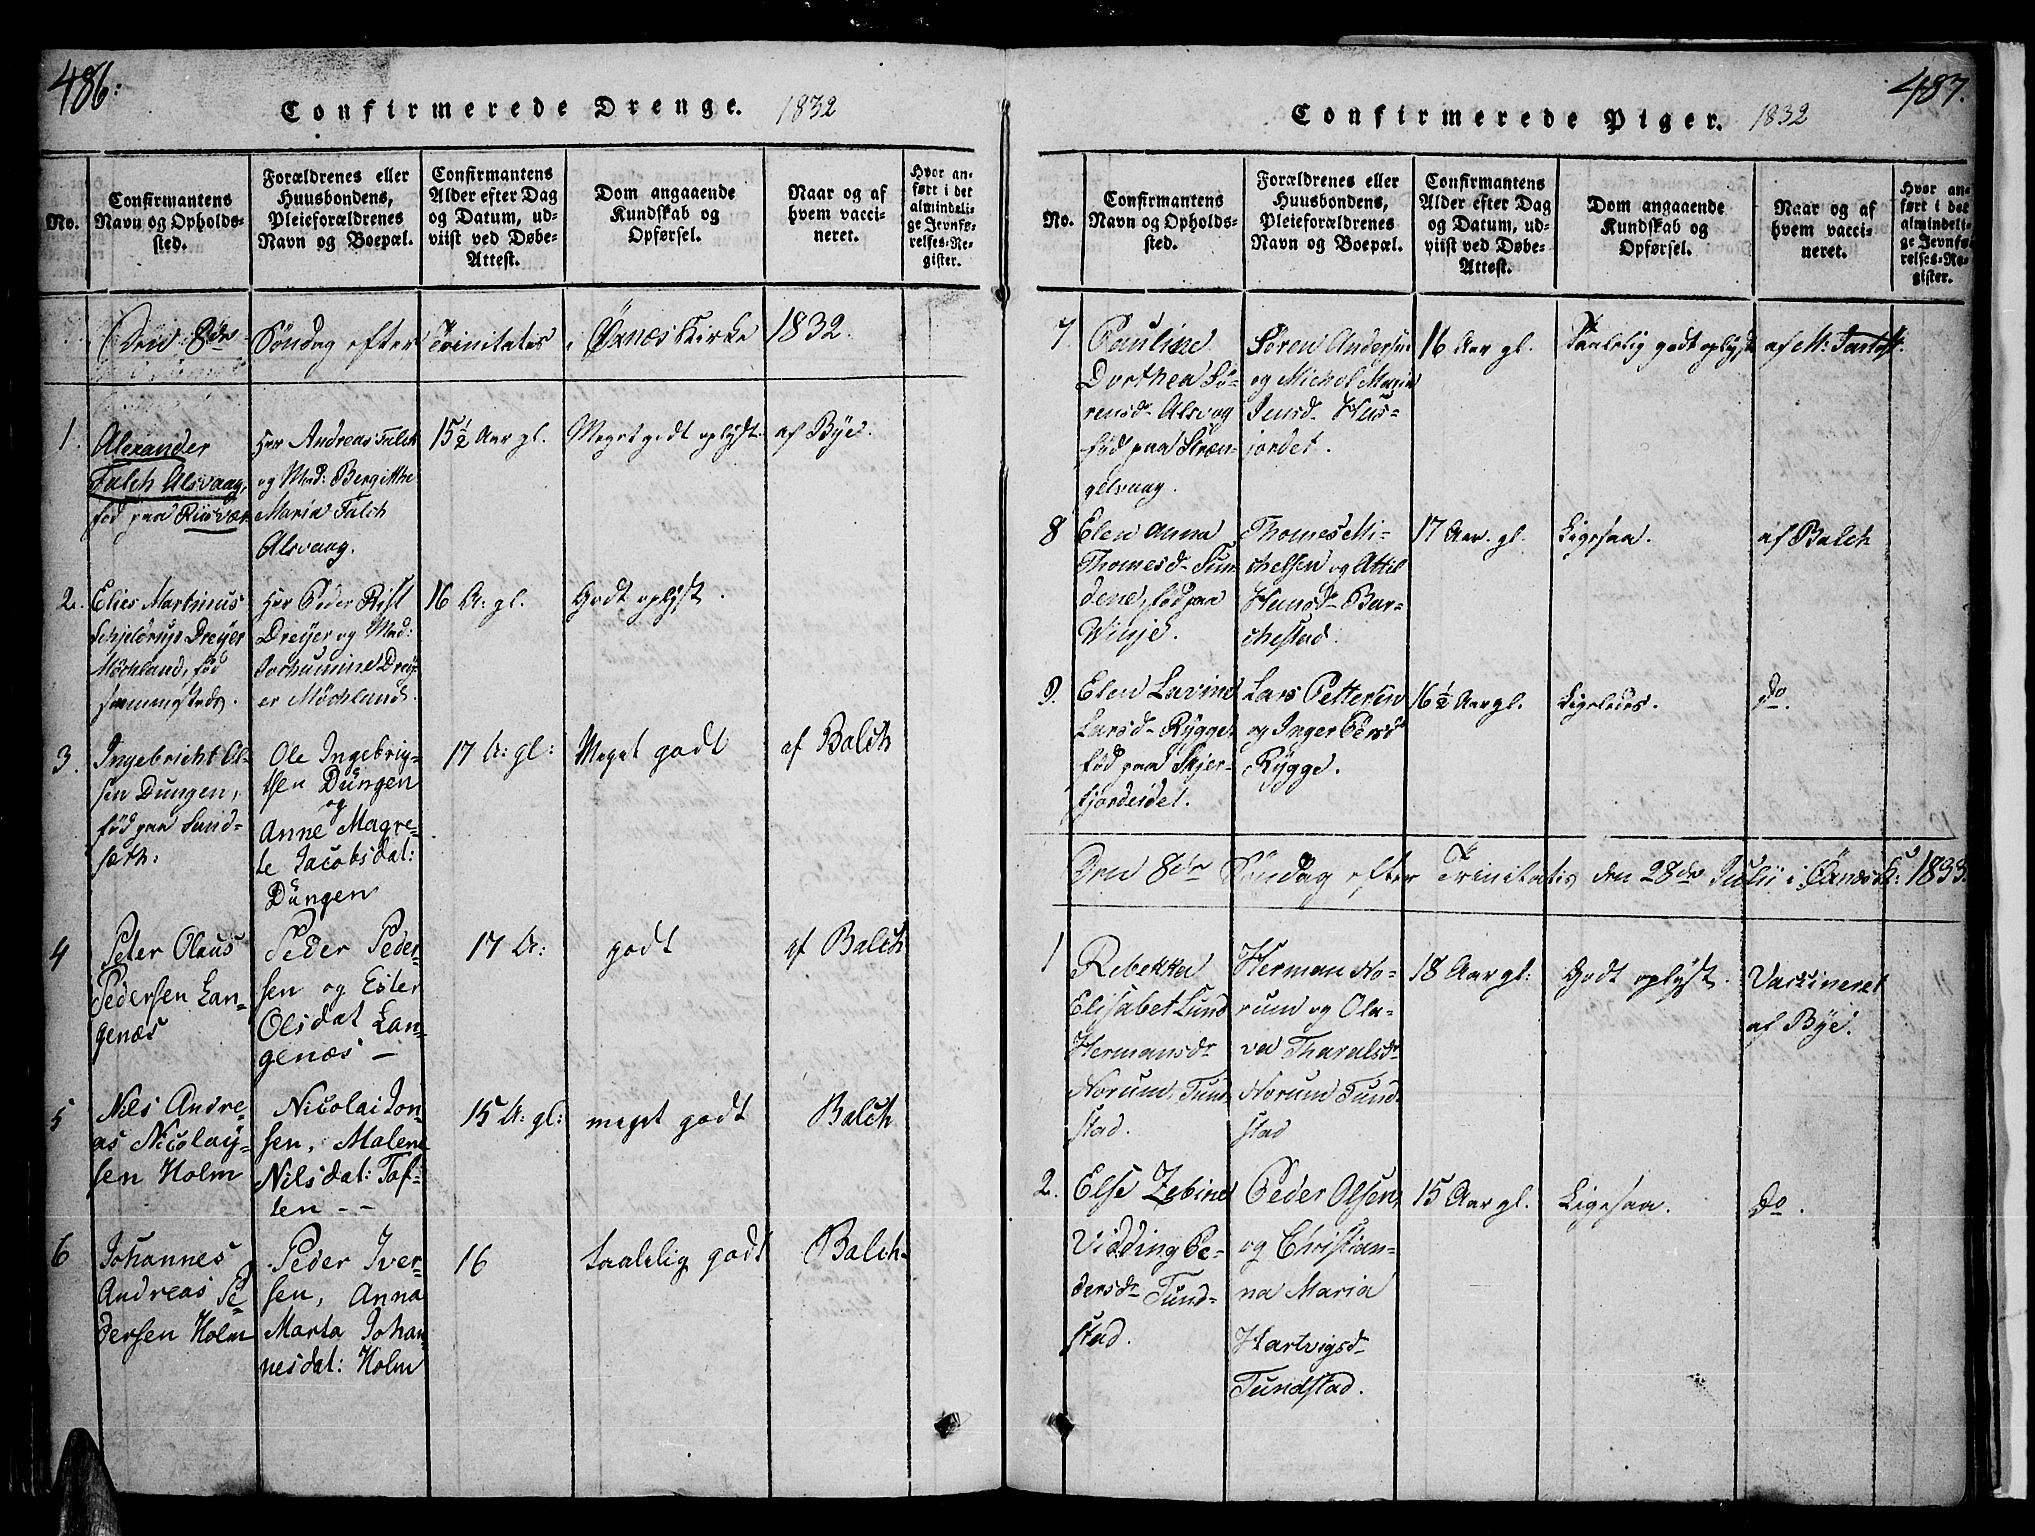 486:
Confirmerede Drenge. 1832
No.
Confirmantens
Navn og Opholds-
sted.
Forældrenes eller
Huusbondens,
Pleieforældrenes
Navn og Boepæl.
Confirmantens
Alder efter Dag
og Datum, ud-
viist ved Døbe-
Attest.
Dom angaaende
Kundskab og
Opførsel.
Naar og af
hvem vacci-
neret.
Hvor an-
ført i det
almindeli-
ge Jevnfø-
relses-Re-
gister.
Den 8de Söndag efter Trinitatis i Öxnæs Kirke 1832.
1.
Alexander
Falch Alsvaag,
fød paa Riisvær
Hr Andreas Falch
og Mad: Bergitthe
Maria Falch
Alsvaag.
15½ Aar gl.
Meget godt oplyst.
af Bye.
2.
Elies Martinus
Schjelderup Dreyer
Möchland, fød
sammesteds.
Hr Peder Rist
Dreyer og Mad:
Jochumine Drey-
er Möchland.
16 A: gl.
Godt oplyst.
3.
Ingebricht Ol-
sen Dungen,
fød paa Sund-
sæth:
Ole Ingebrig-
tsen Dungen
og
Anne Magre-
te Jacobsdat:
Dungen
17 A: gl:
Meget godt
af Balch
4
Peter Olaus
Pedersen Lan-
genæs
Peder Peder-
sen og Ester
Olsdat Lan-
genæs -
17 A:
godt
af Balch
5
Nils Andre-
as Nicolay-
sen Holm
Nicolai Jon-
sen, Malene
Nilsdat: Tof-
ten - -
15 A: gl:
meget godt
Balch
6
Johannes
Andreas Pe-
dersen Holm
Peder Iver-
sen, Anna
Marta Johan-
nesdat: Holm
16
taalelig godt
Balch
487.
Confirmerede Piger. 1832
No.
Confirmantens
Navn og Opholds-
sted.
Forældrenes eller
Huusbondens,
Pleieforældrenes
Navn og Boepæl.
Confirmantens
Alder efter Dag
og Datum, ud-
viist ved Døbe-
Attest.
Dom angaaende
Kundskab og
Opførsel.
Naar og af
hvem vacci-
neret.
Hvor an-
ført i det
almindeli-
ge Jevnfø-
relses-Re-
gister.
7
Pauline
Dorthea Sö-
rensdr Alsvog
fød paa Stræn-
gelvaag.
Sören Andersen
og Michol Maria
Jensdr Hus-
jordet.
16 Aar gl.
Taalelig godt oplyst
af M:
8
Elen Anna
Thomesdr Tun-
dene, fød paa
Winje.
Thomes Mi-
chelsen og Attil
Hansdr Bar-
chestad.
17 Aar. gl.
Ligesaa.
af Balch
9.
Elen Lavine
Larsdr Rygge
fød paa Skjer-
fjordeidet.
Lars Pettersen
og Inger Persdr
Rygge.
16½ Aar gl.
Ligeledes.
Do.
Den 8de Söndag efter Trinitatis den 28de Julii i Öxnes K: 1833.
1
Rebekka
Elisabet Lund
Hermansdr
Norum, Tund-
stad.
Herman No-
rum og Ola-
va Tharalsdr
Norum Tund-
stad
18 Aar gl:
Godt oplyst.
Vackineret
af Bye.
2.
Else Zebine
Vidding Pe-
dersdr Tund-
stad.
Peder Olsen
og Christian-
na Maria
Hartvigsdr
Tundstad.
15 Aar gl.
Ligesaa.
Do.